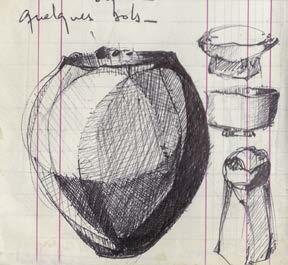 quelques bols_